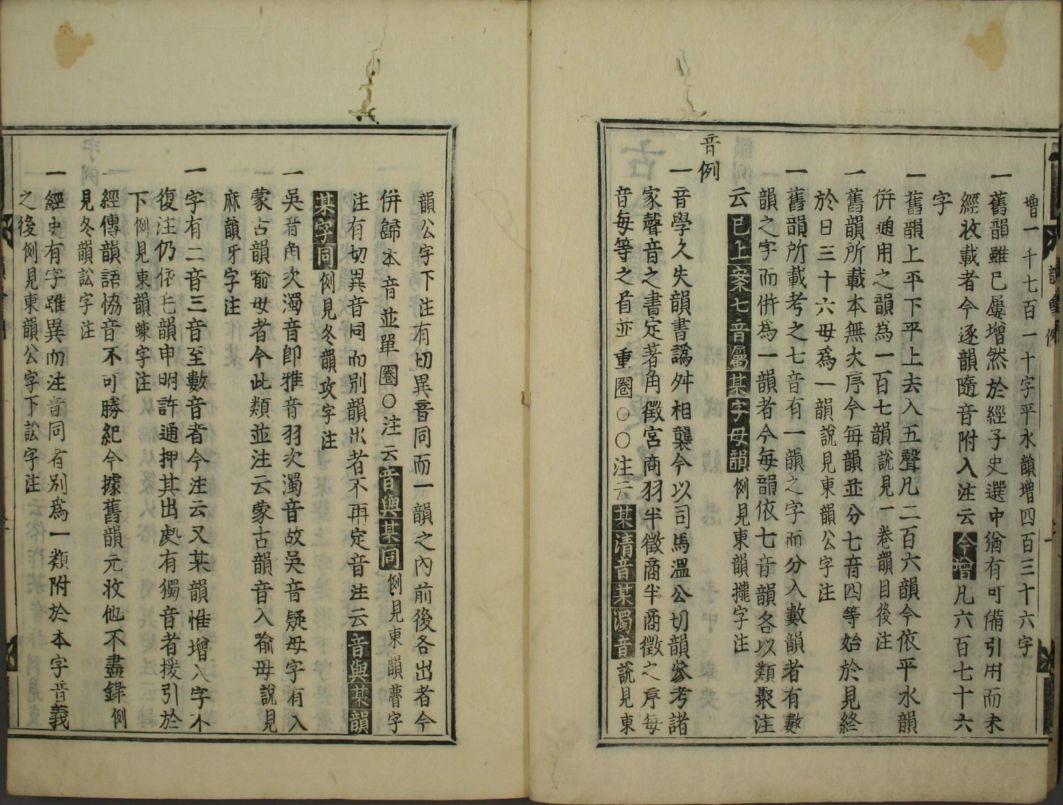 增一千七百一十字平水韻增四百三十六字
一舊韻雖已屢增然於經子史選中猶有可備引用而未
經收載者今逐韻隨音附入注云今增凡六百七十六
字
一舊韻上平下平上去入五聲凡二百六韻今依平水韻
併通用之韻爲一百七韻說見一卷韻目後注
一舊韻所載本無次序今每韻並分七音四等始於見終
於日三十六母爲一韻說見東韻公字注
一舊韻所載考之七音有一韻之字而分入數韻者有數
韻之字而併爲一韻者今每韻依七音韻各以類聚注
云已上案七音屬某字母韻例見東韻攏字注
音例
一音學久失韻書譌舛相襲今以司馬溫公切韻參考諸
家聲音之書定著角徵宮商羽半徵商半商徵之序每
音每等之首亦重圈○○注云某清音某濁音說見東
韻公字下注有切異音同而一韻之內前後各出者今
併歸本音並單圈○注云音與某同例見東韻曹字
注有切異音同而別韻出者不再定音注云音與某韻
某字同例見冬韻攻字注
一吳音角次濁音即雅音羽次濁音故吳音疑母字有入
蒙古韻喻母者今此類並注云蒙古韻音入喻母說見
麻韻牙字注
一字有二音三音至數音者今注云又某韻惟增入字不
復注仍依毛韻申明許通押其出處有獨音者援引於
下例見東韻蝀字注
一經傳韻語恊音不可勝紀今據舊韻元收他不盡錄例
見冬韻訟字注
一經史有字雖異而注音同者別爲一類附於本字音義
之後例見東韻公字下訟字注